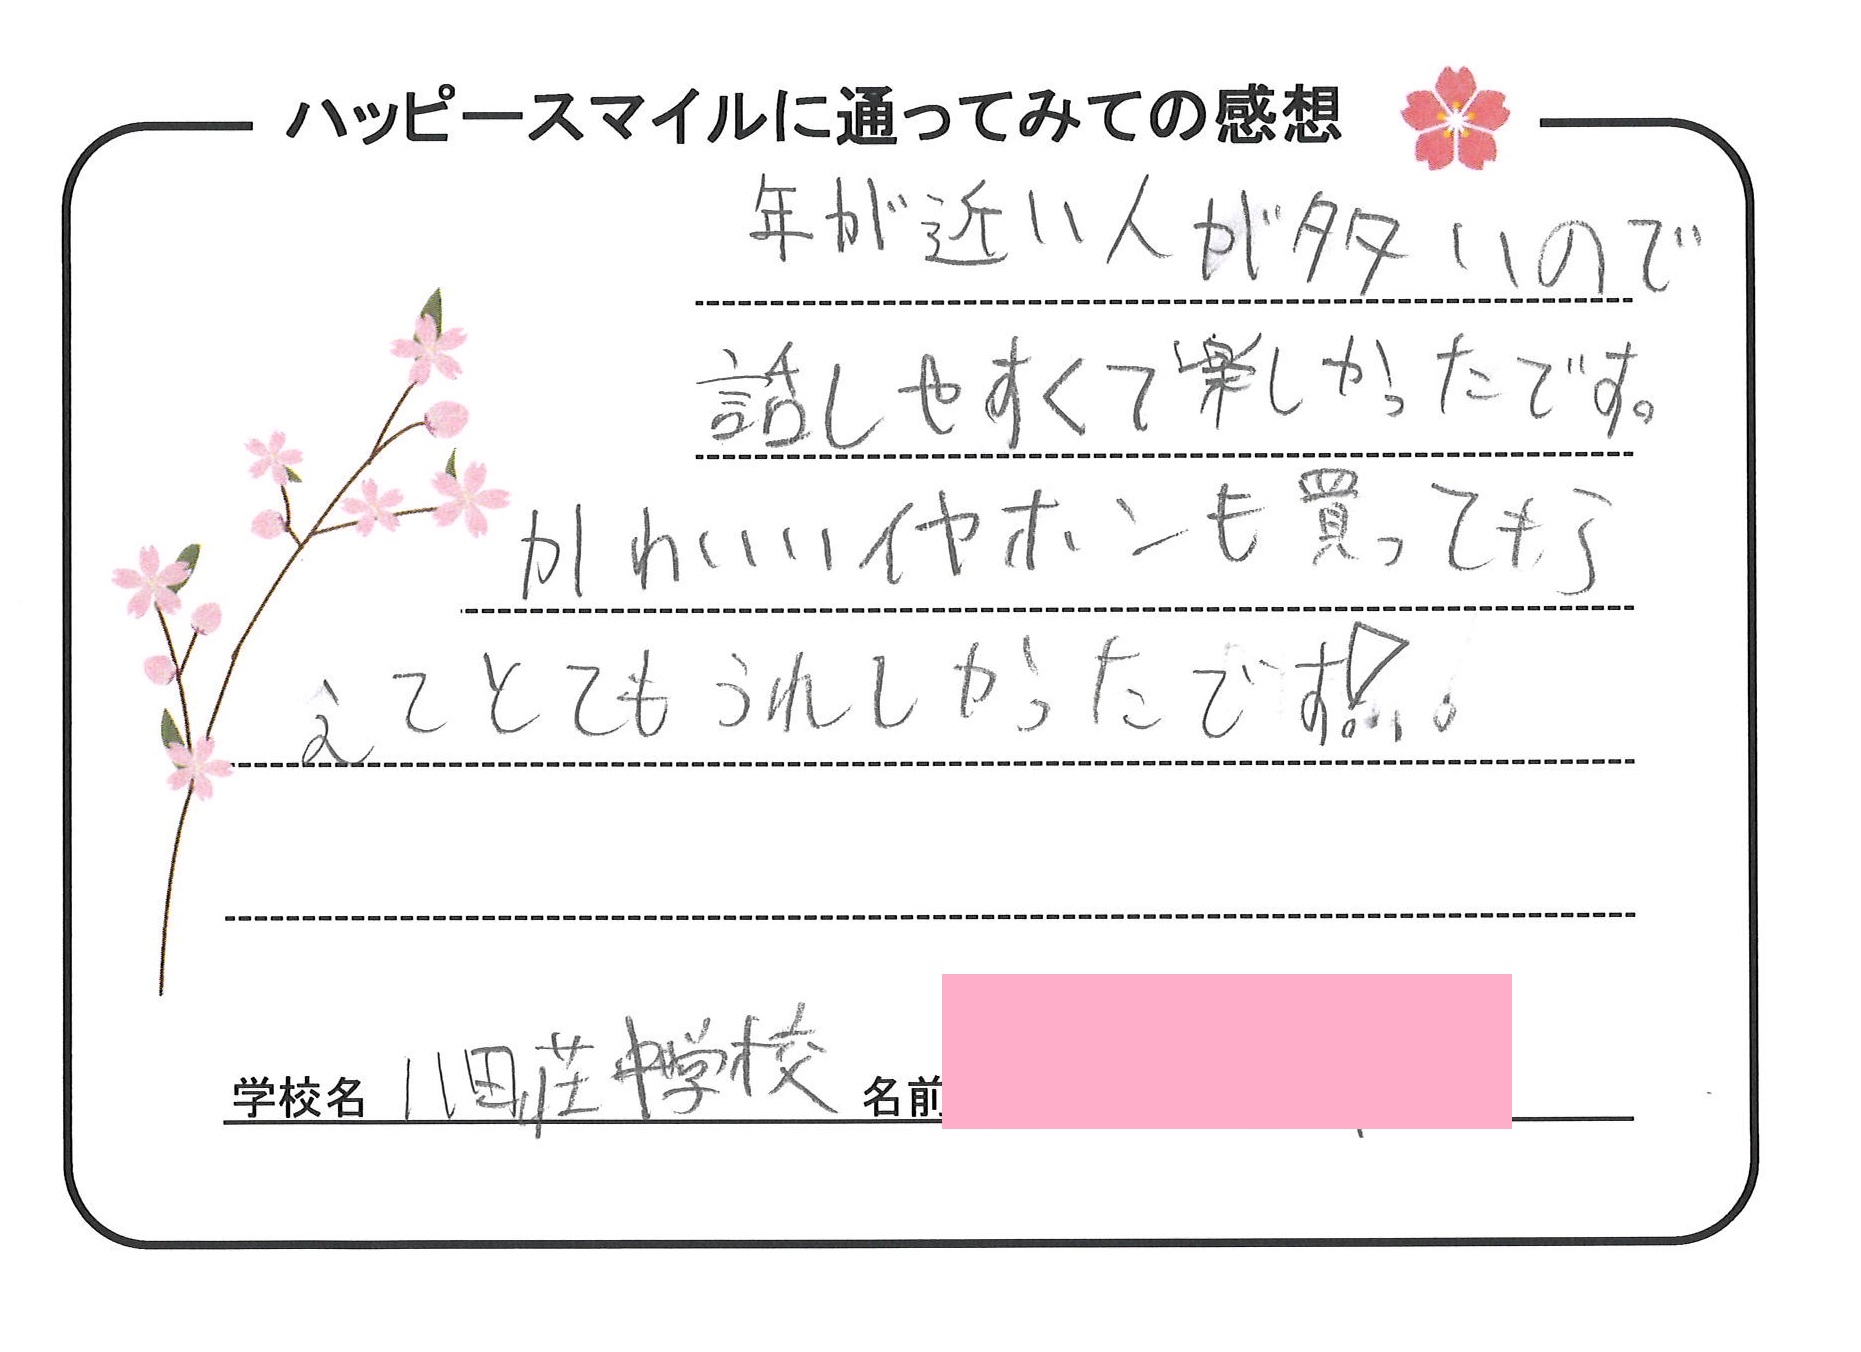 ハッピースマイルに通ってみての感想
年が近い人が多いので
話しやすくて楽しかったです。
かわいいイヤホンも買ってもら
えてとてもうれしかったです!。
学校名 八田荘中学校 名前